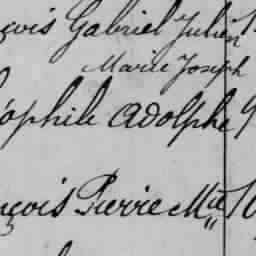 çois Gabriel Julien
Marie Joseph
éophile Adolphe
nçois Pierre Mie